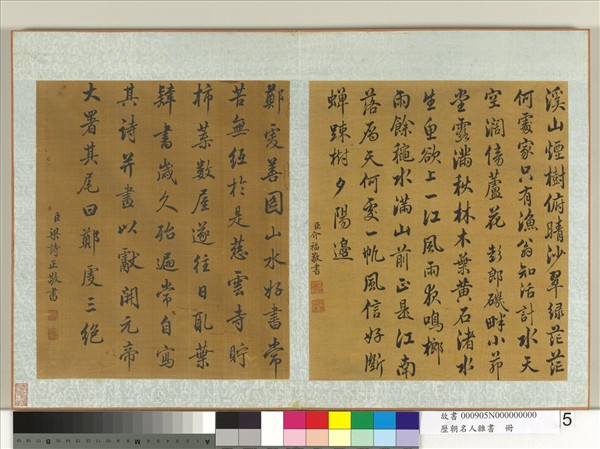 溪山煙樹俯晴沙翠綠茫茫
何處家只有漁翁知活計水天
空濶傍蘆花 彭郎磯畔小茆
堂露滿秋林木葉黃石渚水
生魚欲上一江風雨夜鳴榔
雨餘穐水滿山前正是江南
落鴈天何處一帆風信好斷
蟬踈樹夕陽邊
臣介福敬書
鄭虔善圖山水好書常
苦無紙於是慈雲寺貯
柿葉數屋遂往日取葉
肄書歲久殆遍常自寫
其詩并畫以獻開元帝
大署其尾曰鄭虔三絕
臣梁詩正敬書
故書 000905N000000000
歷朝名人雜書 冊
5